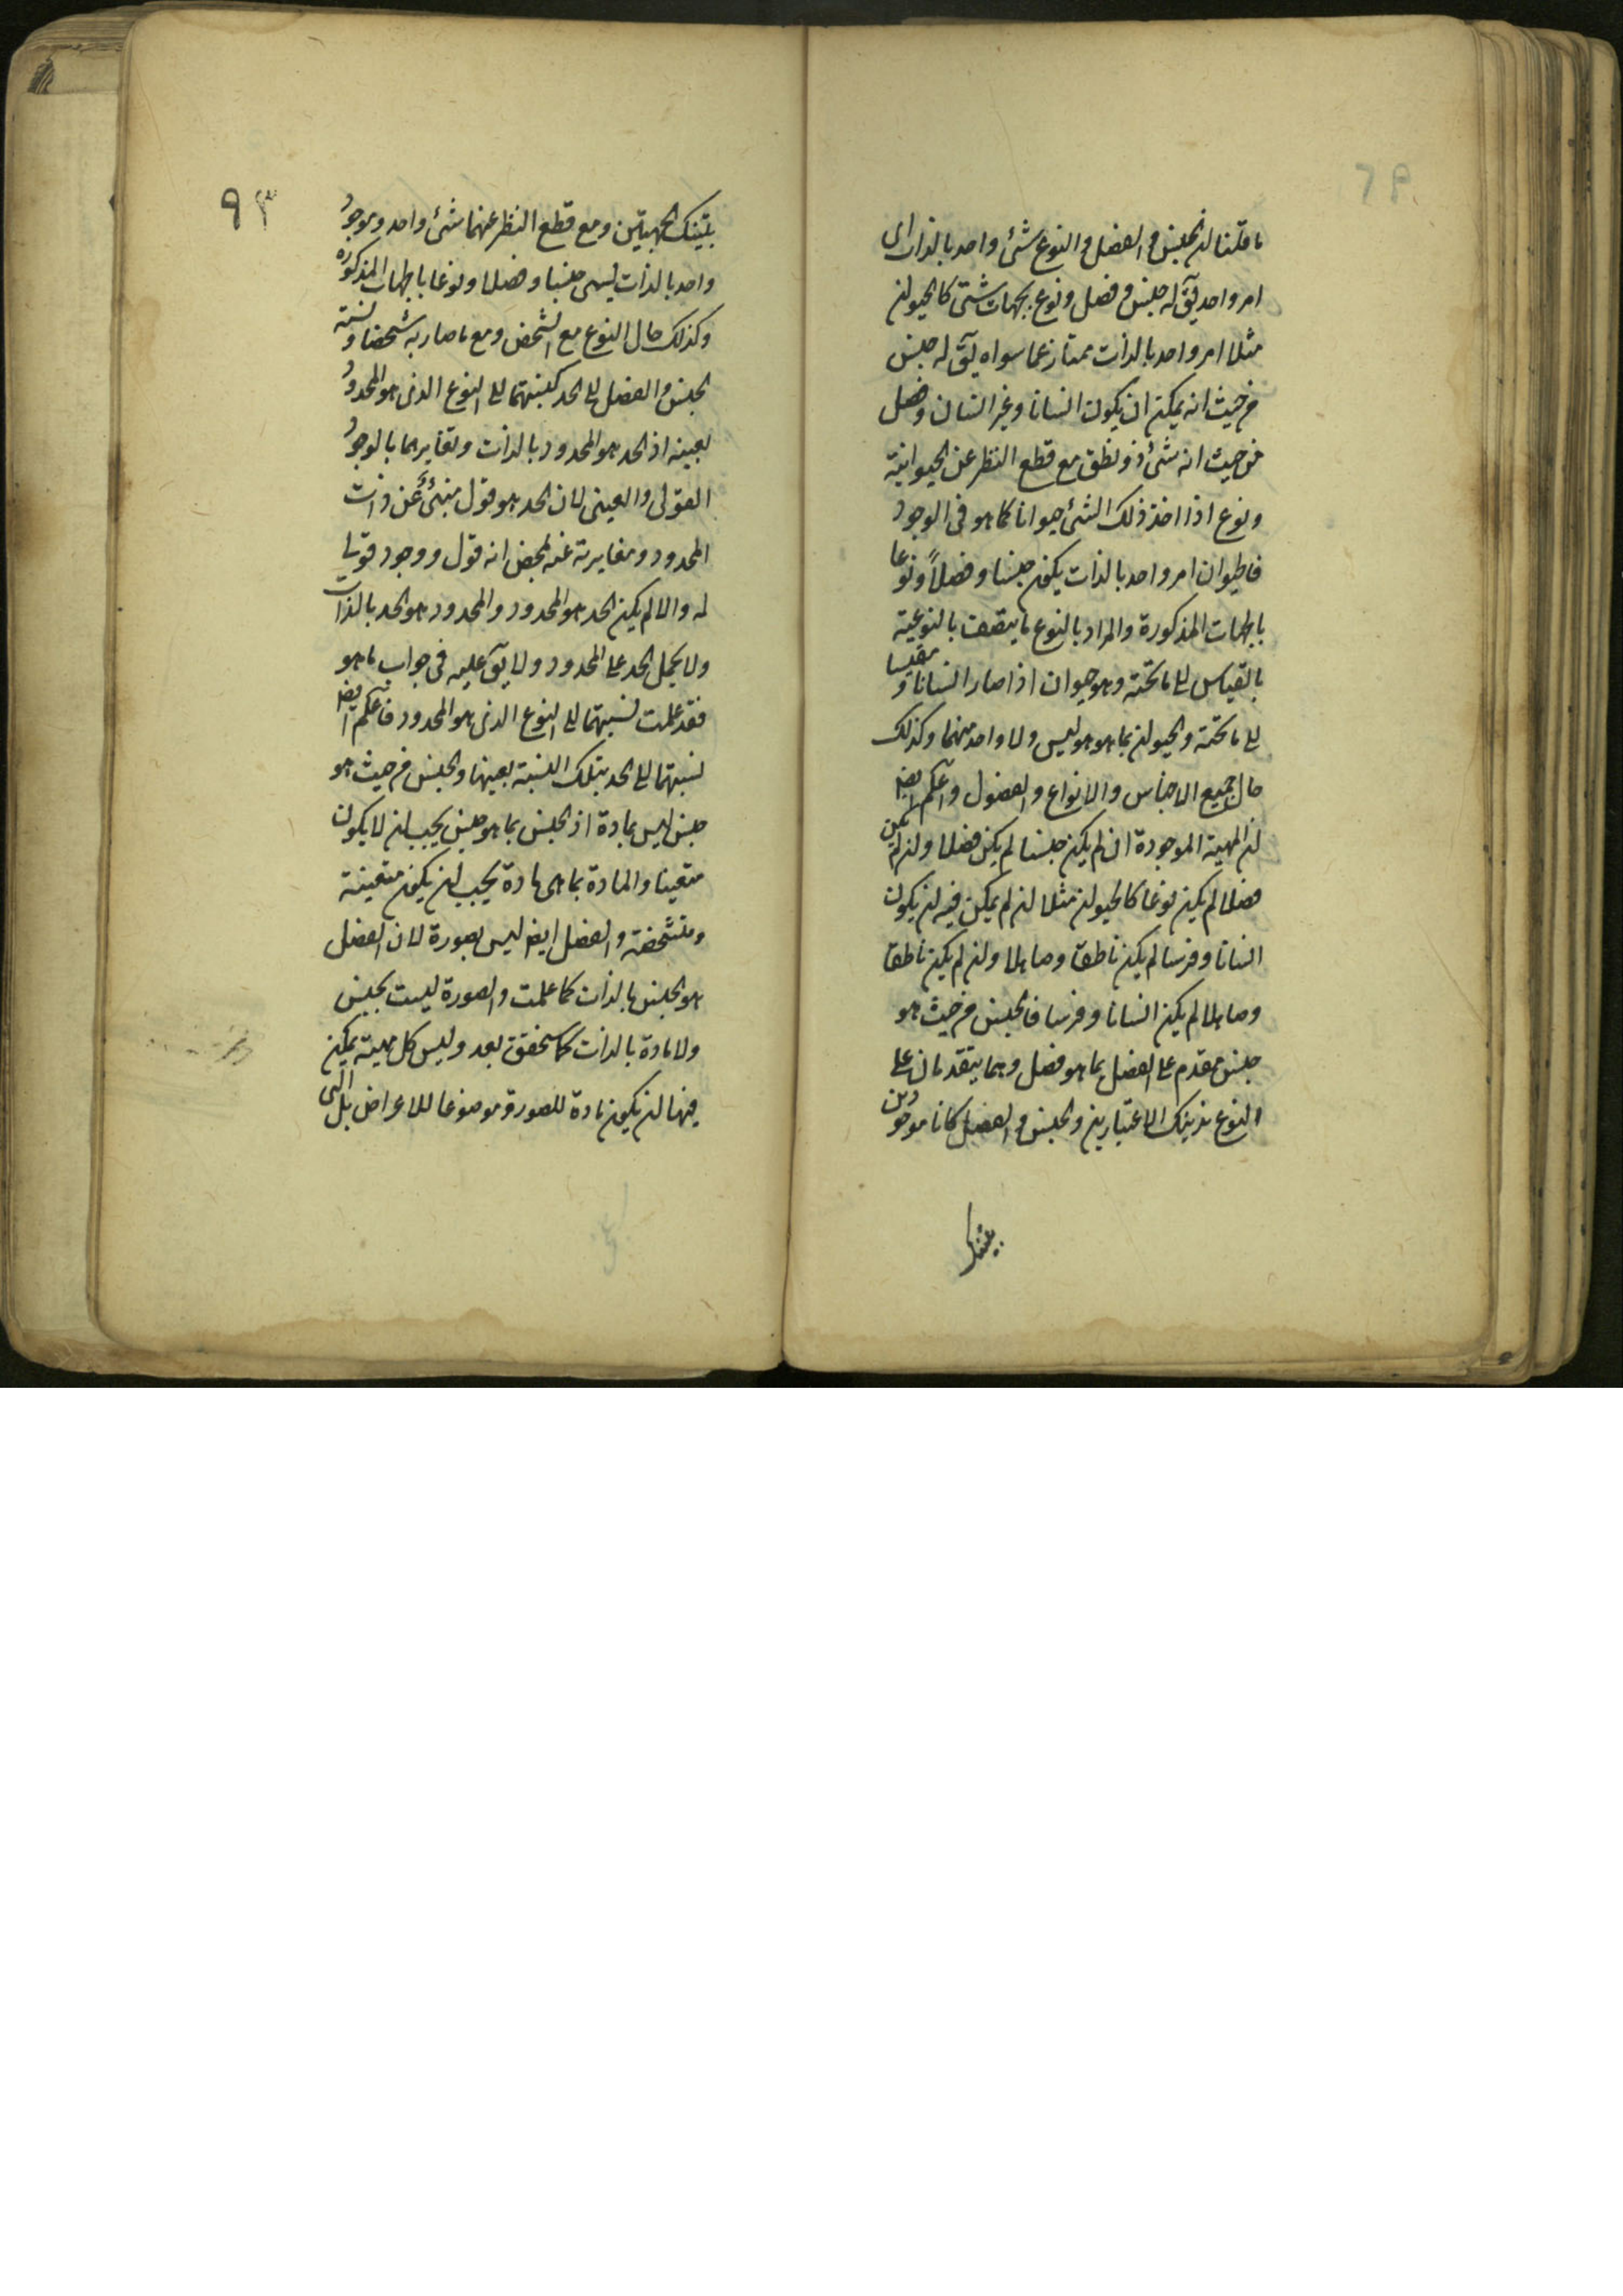 ما قلنا ان الجنس و الفصل و النوع شئ واحد بالذات ای
امر واحد یق له جنس و فصل و نوع بجهات شتی کالحیوان
مثلا امر واحد بالذات ممتاز عما سواه یق له جنس
من حیث انه یمکن ان یکون انسانا و غیر انسان و فصل
من حیث انه شئ ذو نطق مع قطع النظر عن الحیوانیة
و نوع اذا اخذ ذلک الشئ حیوانا کما هو فی الوجود
فالحیوان امر واحد بالذات یکون جنسا و فصلاً و نوعا
بالجهات المذکورة و المراد بالنوع ما یتصف بالنوعیة
بالقیاس الی ما تحته و هو حیوان اذا صار انسانا و مقیسا
الی ما تحته و الحیوان بما هو هو لیس و لا واحد منهما و کذلک
حال جمیع الاجناس و الانواع و الفصول و اعلم ایضا
ان المهیة الموجودة ان لم یکن جنسا لم یکن فصلا و ان لم یکن
فصلا لم یکن نوعا کالحیوان مثلا ان لم یمکن فیه ان یکون
انسانا و فرسا لم یکن ناطقا و صاهلا و ان لم یکن ناطقا
و صاهلا لم یکن انسانا و فرسا فالجنس من حیث هو
جنس مقدم علی الفصل بما هو فصل و هما یتقدمان علی
النوع بذینک الاعتبارین و الجنس و الفصل کانا موجودین
بتینک
٩٣
بتینک الجهتین و مع قطع النظر عنهما شئ واحد و موجود
واحد بالذات لیسمی جنسا و فصلا و نوعا بالجهات المذکورة
و کذلک حال النوع مع الشخص و مع ما صار به شخصا و نسبة
الجنس و الفصل الی الحد کنسبتهما الی النوع الذی هو المحدود
بعینه اذ الحد هو المحدود بالذات و تغایرهما بالوجود
القولی و العینی لان الحد هو قول منبئ عن ذات
المحدود و مغایرته عنه لمحض انه قول و وجود قولی
له و الا لم یکن الحد هو المحدود و المحدود هو الحد بالذات
و لا یحمل الحد علی المحدود و لا یق علیه فی جواب ما هو
فقد علمت نسبتهما الی النوع الذی هو المحدود فاعلم ایضا
نسبتهما الی الحد بتلک النسبة بعینها و الجنس من حیث هو
جنس لیس بمادة اذ الجنس بما هو جنس یجب ان لا یکون
متعینا و المادة بما هی مادة یجب ان یکون متعینة
و متشخصة و الفصل ایضا لیس بصورة لان الفصل
هو الجنس بالذات کما علمت و الصورة لیست بجنس
و لا مادة بالذات کما سنحقق بعد و لیس کل مهیة یمکن
فیها ان یکون مادة للصورة و موضوعا للاعراض بل التی